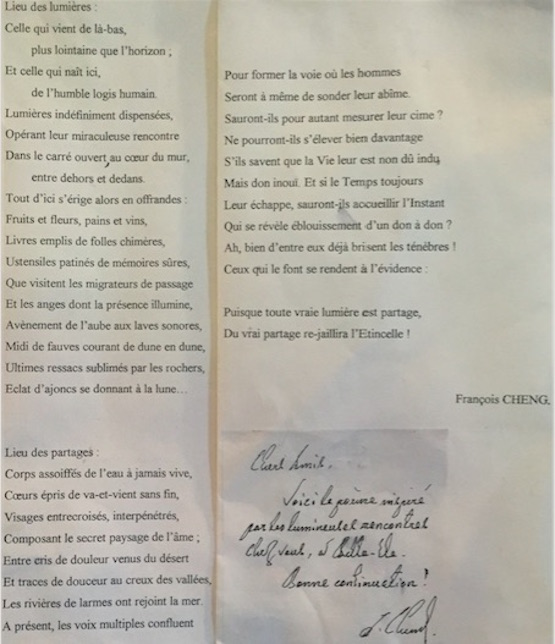 Lieu des lumières :
Celle qui vient de là-bas,
plus lointaine que l'horizon ;
Et celle qui naît ici,
de l'humble logis humain.
Lumières indéfiniment dispensées,
Opérant leur miraculeuse rencontre
Dans le carré ouvert au cœur du mur,
entre dehors et dedans.
Tout d'ici s'érige alors en offrandes :
Fruits et fleurs, pains et vins,
Livres emplis de folles chimères,
Ustensiles patinés de mémoires sûres,
Que visitent les migrateurs de passage
Et les anges dont la présence illumine,
Avènement de l'aube aux laves sonores,
Midi de fauves courant de dune en dune,
Ultimes ressacs sublimés par les rochers,
Eclat d'ajoncs se donnant à la lune…
Lieu des partages :
Corps assoiffés de l'eau à jamais vive,
Cœurs épris de va-et-vient sans fin,
Visages entrecroisés, interpénétrés,
Composant le secret paysage de l'âme ;
Entre cris de douleur venus du désert
Et traces de douceur au creux des vallées,
Les rivières de larmes ont rejoint la mer.
A présent, les voix multiples confluent
Pour former la voie où les hommes
Seront à même de sonder leur abîme.
Sauront-ils pour autant mesurer leur cime ?
Ne pourront-ils s'élever bien davantage
S'ils savent que la Vie leur est non dû indu
Mais don inouï. Et si le Temps toujours
Leur échappe, sauront-ils accueillir l'Instant
Qui se révèle éblouissement d'un don à don ?
Ah, bien d'entre eux déjà brisent les ténèbres !
Ceux qui le font se rendent à l'évidence :
Puisque toute vraie lumière est partage,
Du vrai partage re-jaillira l'Etincelle !
François CHENG.
Chers Amis,
Voici le poème inspiré
par les lumineuses rencontres
chez vous, à Belle-Ile.
Bonne continuation !
F. Cheng